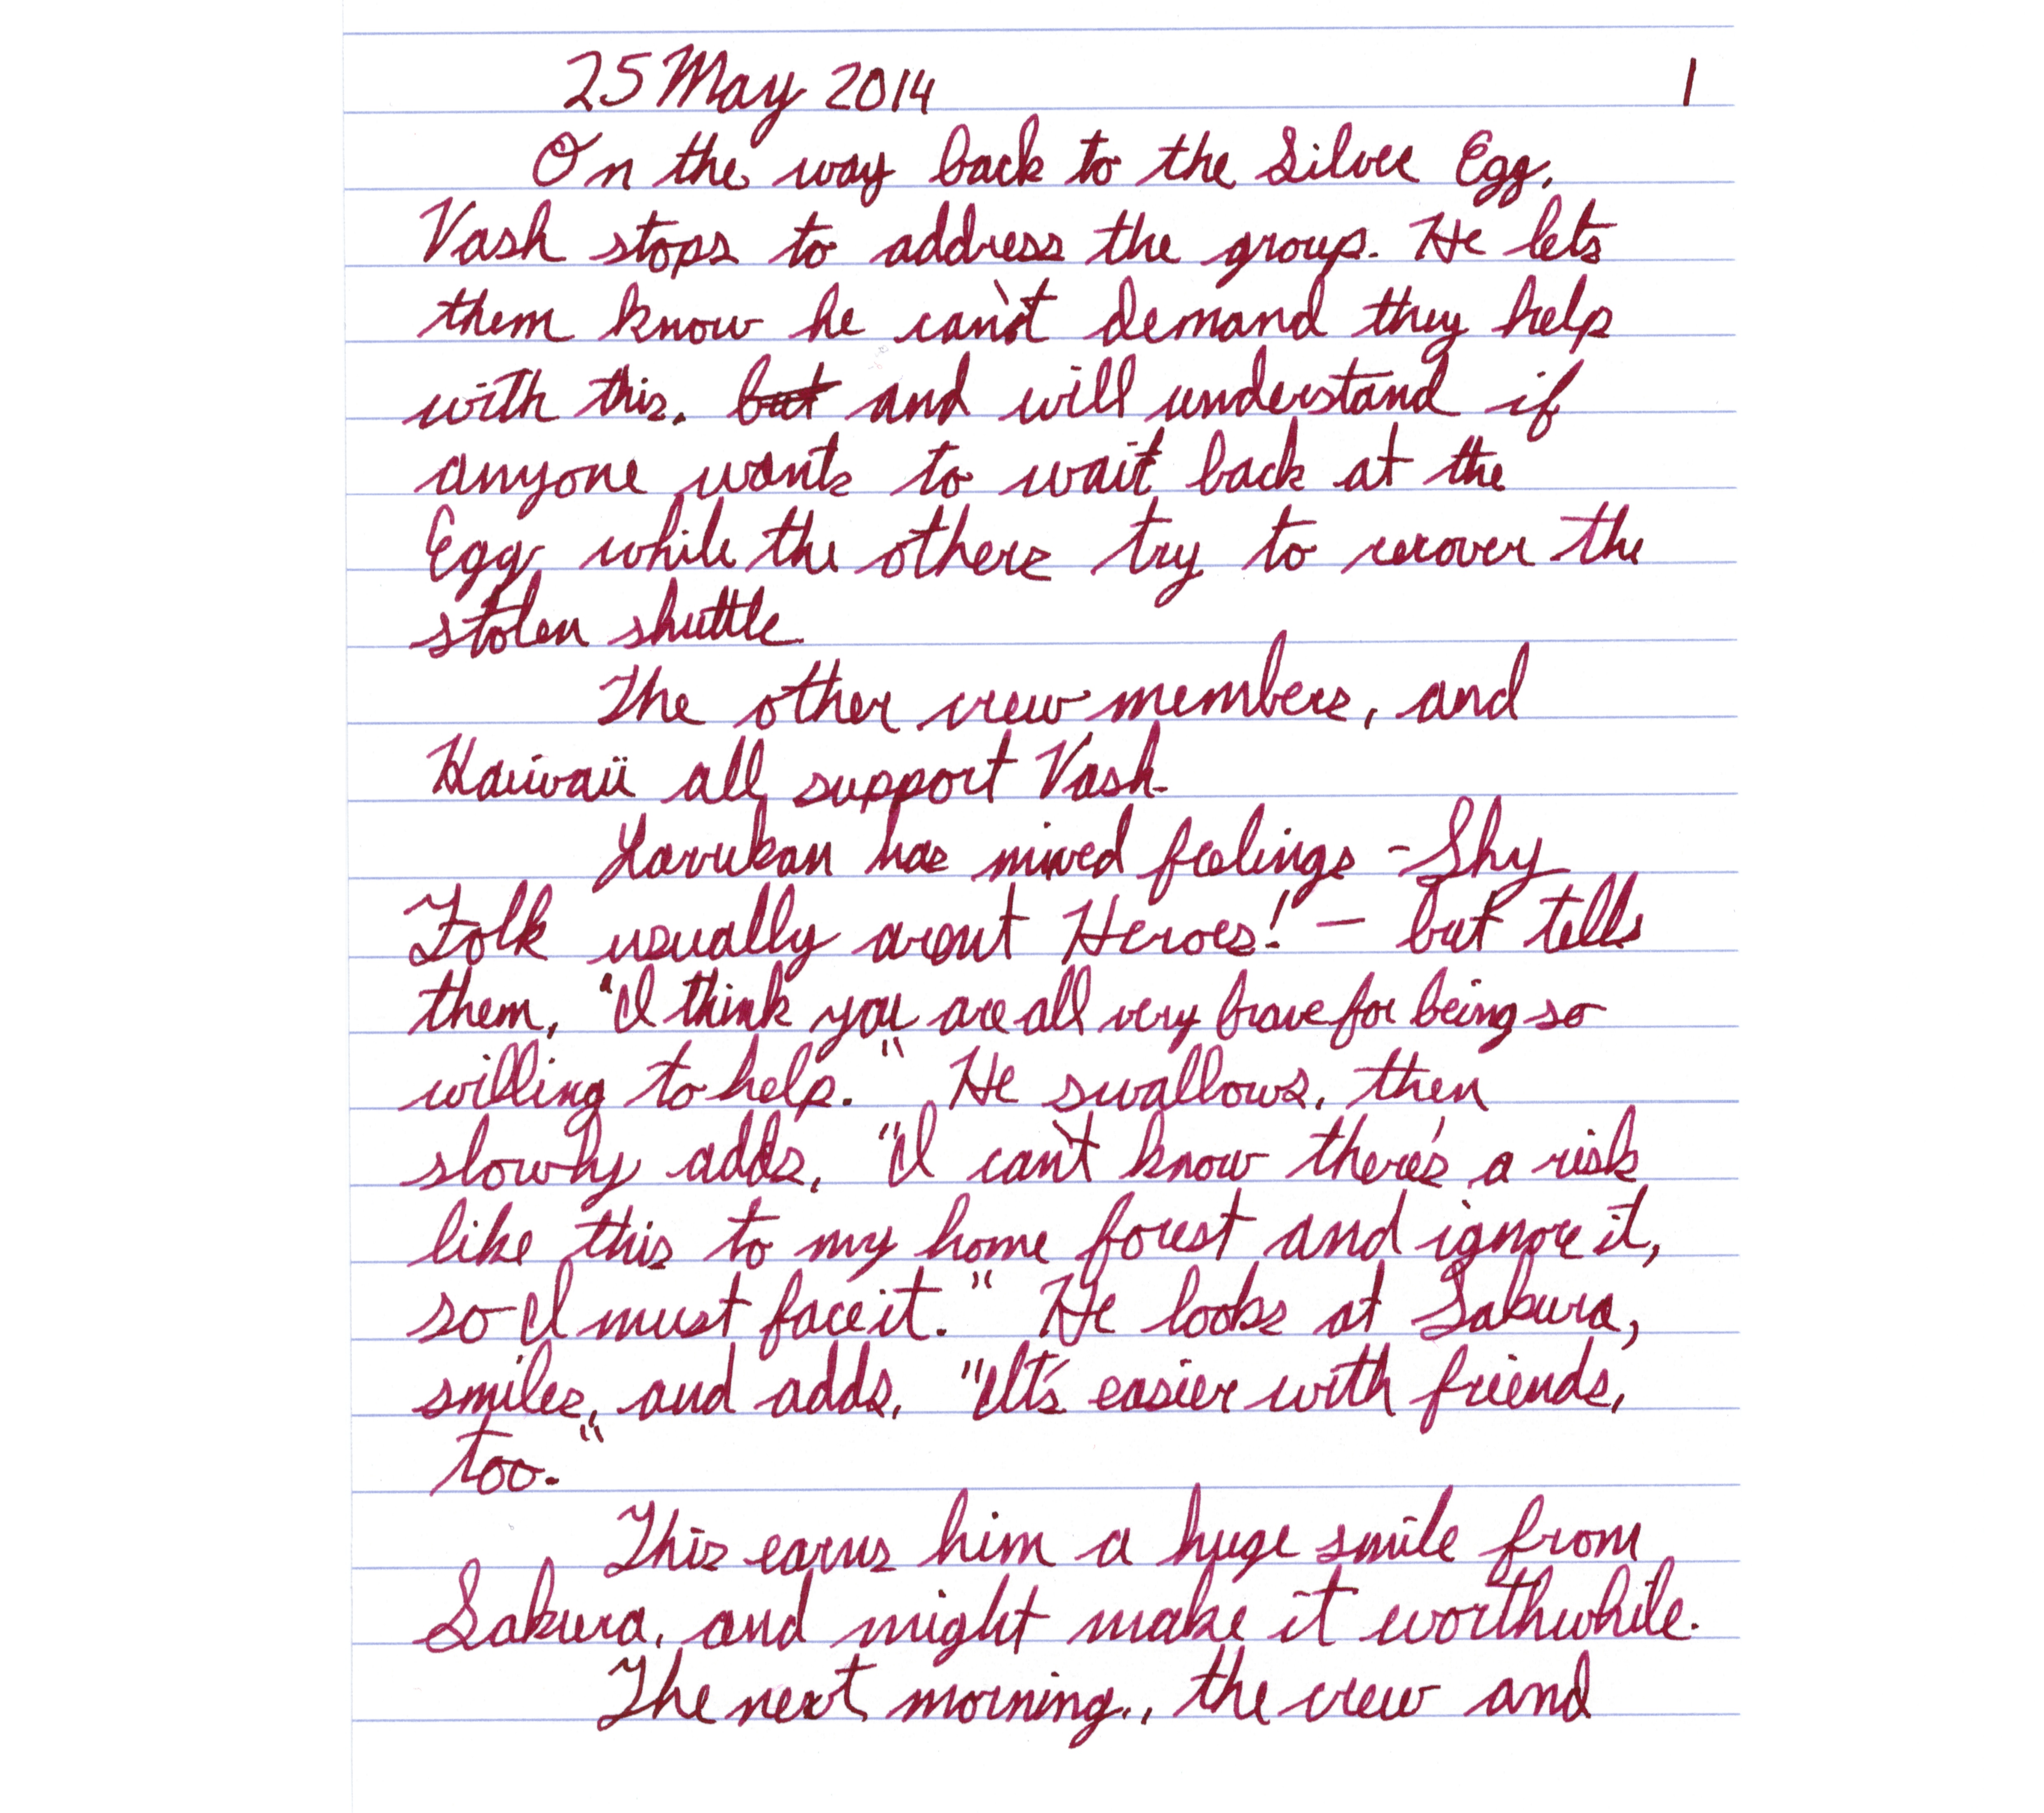 25 May 2014 1
On the way back to the Silver Egg,
Vash stops to address the group. He lets
them know he can't demand they help
with this, but and will understand if
anyone wants to wait back at the
Egg while the others try to recover the
stolen shuttle
The other crew members, and
Hawaii all support Vash.
has mixed feelings - Shy
Folk usually arent Heroes! - but tells
them, "I think you are all very brave for being so
willing to help." He swallows, then
slowly adds, "I can't know there's a risk
like this to my home forest and ignore it,
so I must face it." He looks at Sakura,
smiles, and adds, "It's easier with friends,
too."
This earns him a huge smile from
Sakura, and might make it worthwhile.
The next morning, the crew and